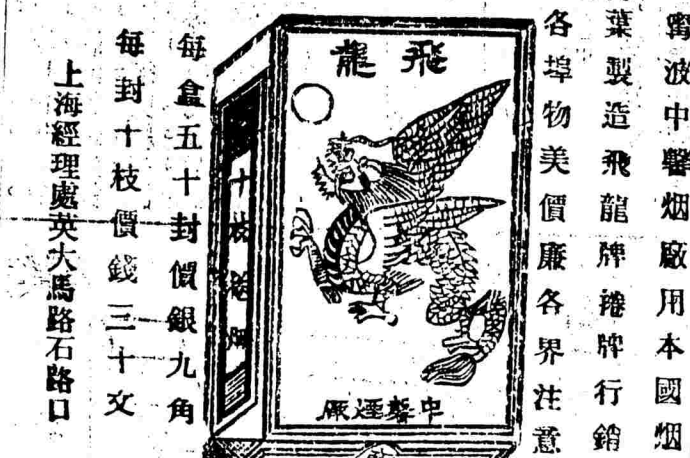 甯波中馨烟廠用本國烟
葉製造飛龍牌捲牌行銷
各埠物美價廉各界注意
飛龍
十枝卷烟
中馨煙厰
每盒五十封價銀九角
每封十枝價錢三十文
上海經理處英大馬路石路口